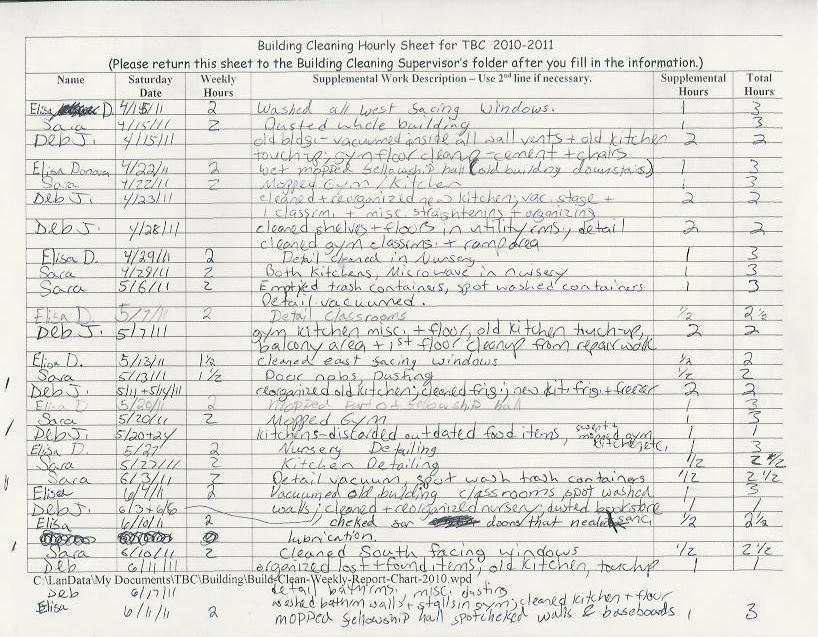 Building Cleaning Hourly Sheet for TBC 2010-2011
(Please return this sheet to the Building Cleaning Supervisor's folder after you fill in the information.)
Name Saturday Date Weekly Hours Supplemental Work Description – Use 2nd line if necessary. Supplemental Hours Total Hours
Elisa D. 4/15/11 2 Washed all west facing windows. 1 3
Sara 4/15/11 2 Dusted whole building 1 3
Deb J. 4/15/11 old bldg. - vacuumed inside all wall vents + old kitchen 2 2
touch-up, gym floor cleanup - cement + chairs
Elisa Donova 4/22/11 2 Wet mopped fellowship hall (old building downstairs) 1 3
Sara 4/22/11 2 Mopped Gym / Kitchen 1 3
Deb J. 4/23/11 cleaned + reorganized new kitchen; vac. stage + 2 2
1 classrm. + misc. straightening + organizing
Deb J. 4/28/11 cleaned shelves + floors in utility rms., detail 2 2
cleaned gym classrms. + ramp area
Elisa D. 4/29/11 2 Detail cleaned in Nursery 1 3
Sara 4/29/11 2 Both Kitchens, Microwave in nursery 1 3
Sara 5/6/11 2 Emptyed trash containers, spot washed containers 1 3
Detail vacuumed.
Elisa D. 5/7/11 2 Detail Classrooms 1/2 2 1/2
Deb J. 5/7/11 gym kitchen misc. + floor, old kitchen touch-up, 2 2
balcony area + 1st floor cleanup from repair work
Elisa D. 5/13/11 1 1/2 cleaned east facing windows 1/2 2
Sara 5/13/11 1 1/2 Door nobs, Dusting 1/2 2
Deb J. 5/11+5/14/11 reorganized old kitchen; cleaned frig; new kit. frig + freezer 2 2
Elisa D 5/20/11 2 Mopped part of fellowship hall 1 3
Sara 5/20/11 2 Mopped Gym 1 3
Deb J. 5/20+24 kitchens-discarded outdated food items, swept + mopped gym kitchen, etc. 1 1
Elisa D. 5/27 2 Nursery Detailing 1 3
Sara 5/27/11 2 Kitchen Detailing 1/2 2 1/2
Sara 6/3/11 2 Detail vacuum, spot wash trash containers 1/2 2 1/2
Elisa 6/4/11 2 Vacuumed old building classrooms spot washed 1 3
Deb J. 6/3+6/6 walls; cleaned + reorganized nursery; dusted bookstore 1 1
Elisa 6/10/11 2 cheked for doors that needed 1/2 2 1/2
lubrication.
Sara 6/10/11 2 Cleaned South facing windows 1/2 2 1/2
Deb 6/11/11 organized lost + found items, old kitchen, touchup 1 1
C:\LanData\My Documents\TBC\Building\Build-Clean-Weekly-Report-Chart-2010.wpd
Deb 6/17/11 detail bathrms, misc. dusting
washed bathrm walls + stalls in gym; cleaned kitchen + flour
Elisa 6/11/11 2 mopped fellowship hall spotcheked walls & baseboards 1 3